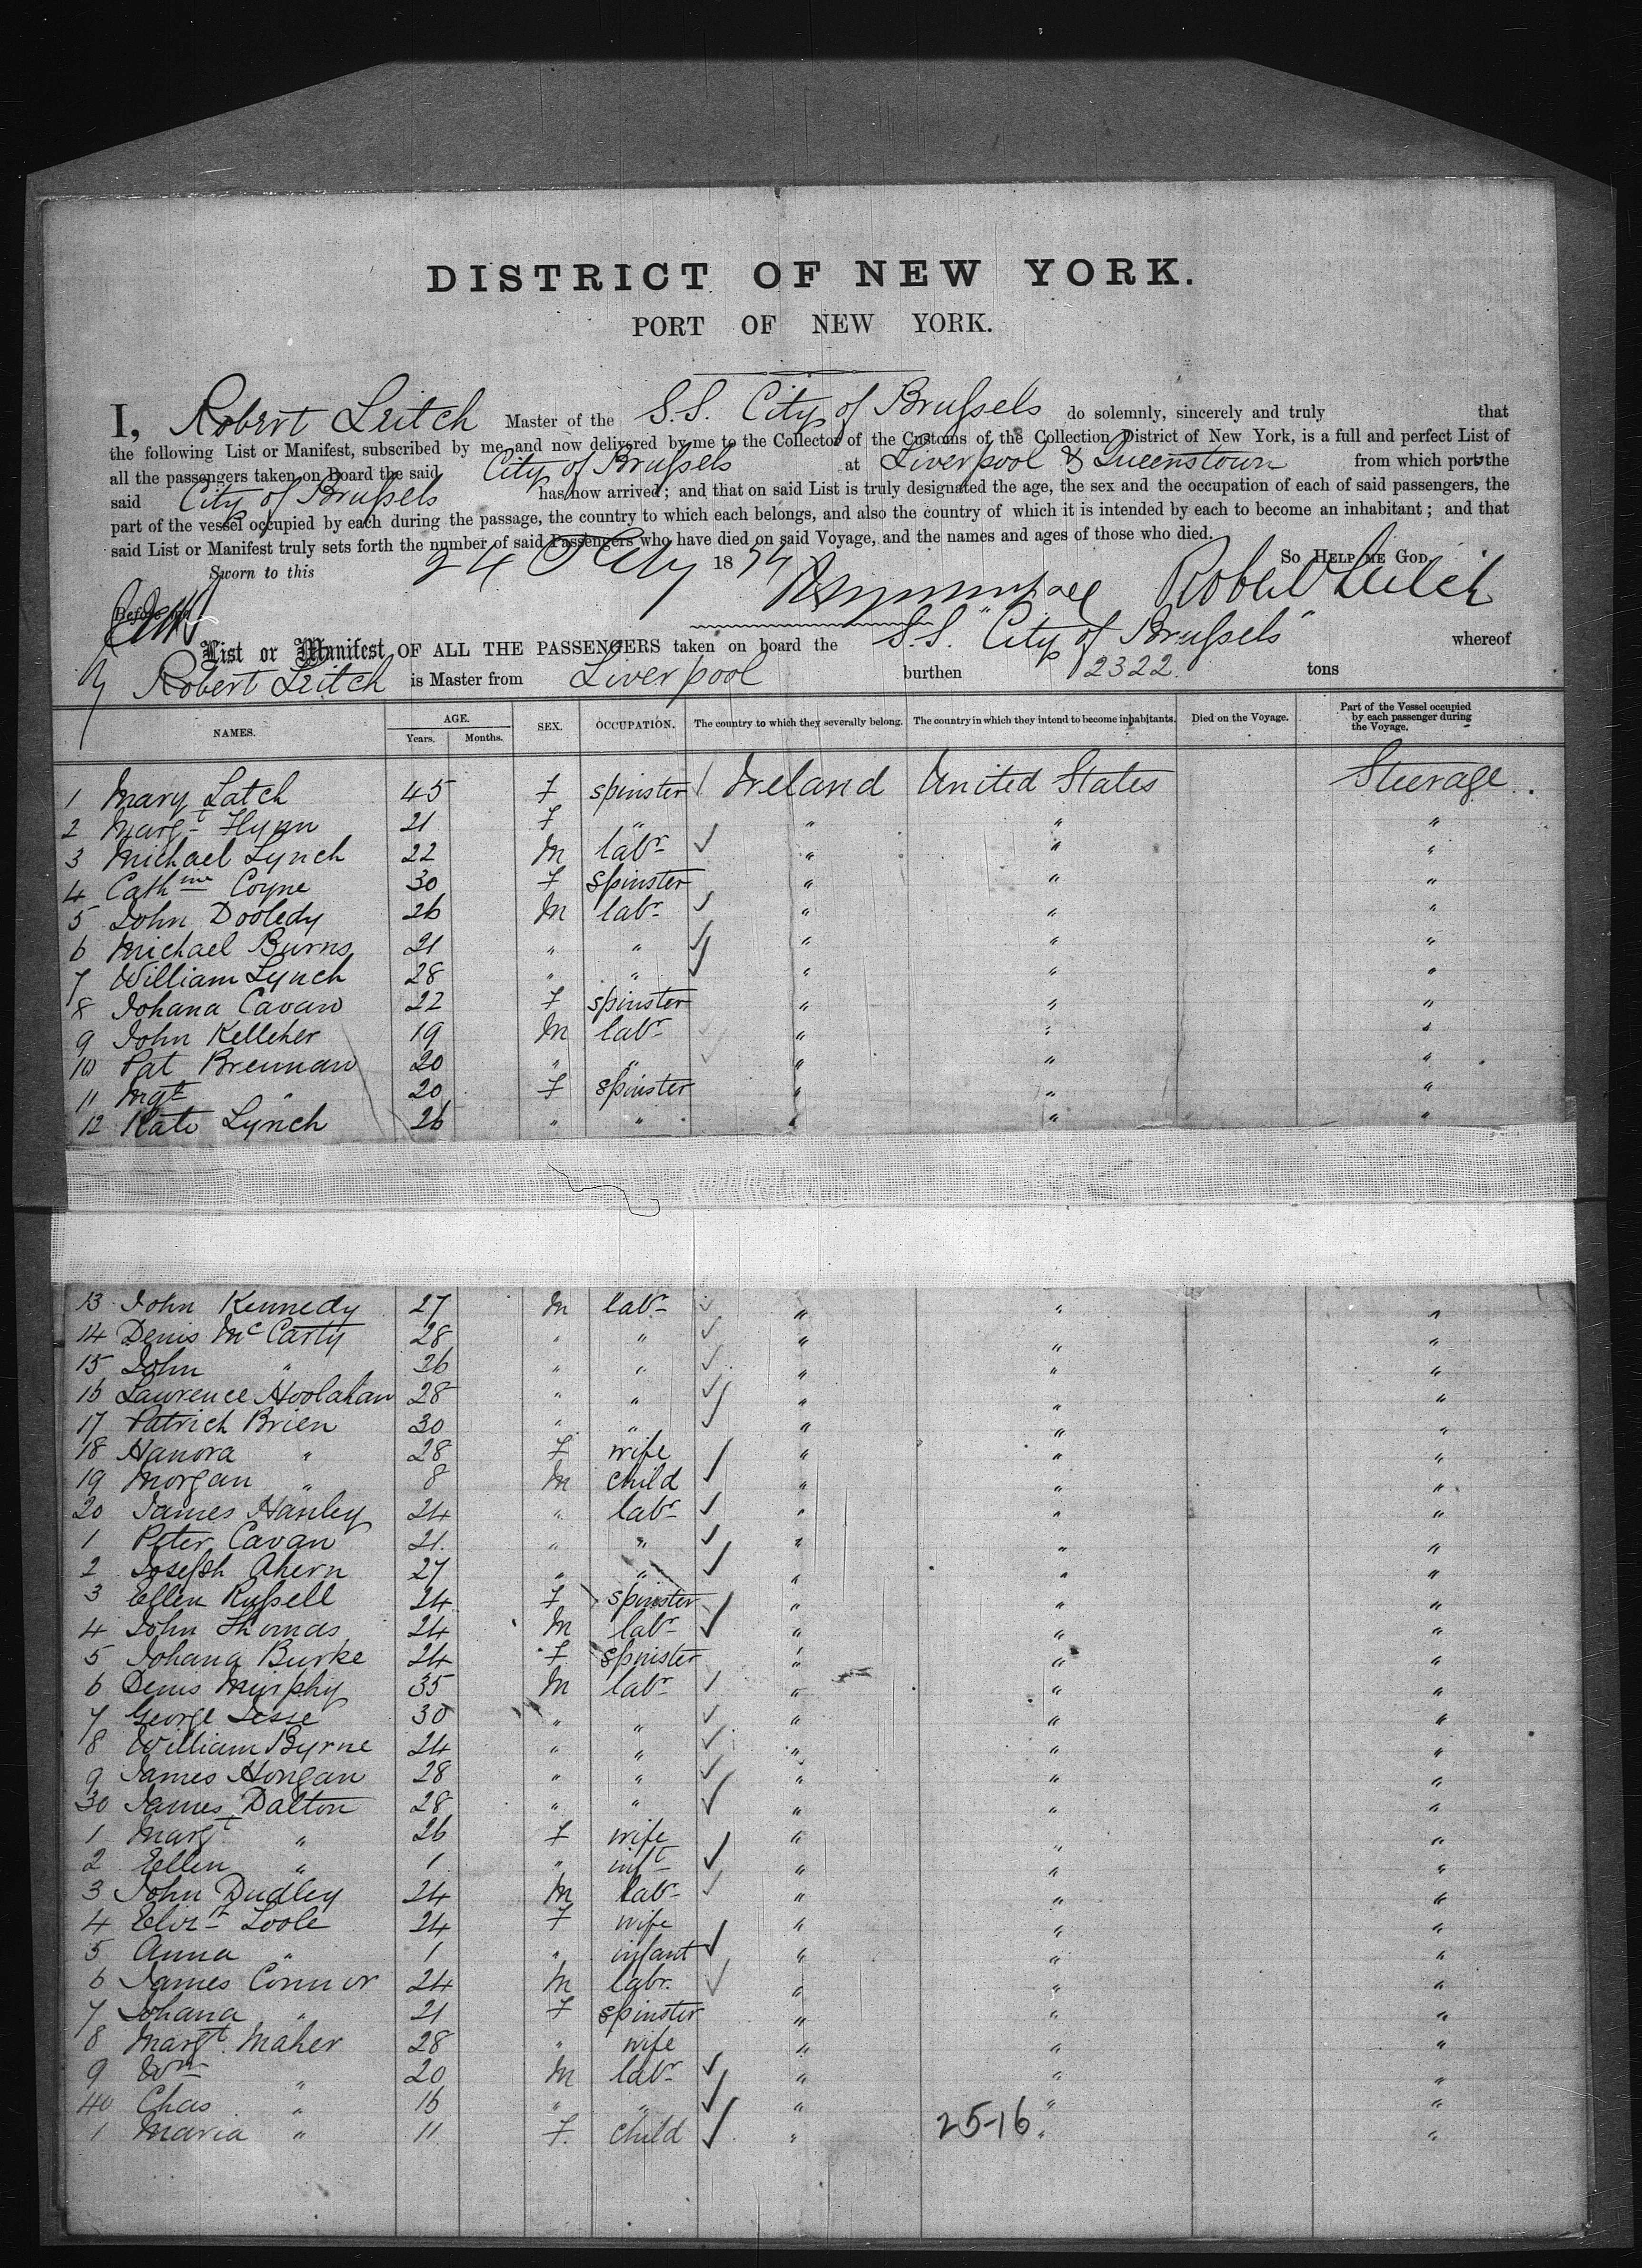 DISTRICT OF NEW YORK.
PORT OF NEW YORK.
I, Robert Leitch Master of the S.S. City of Brussels do solemnly, sincerely and truly that
the following List or Manifest, subscribed by me and now delivered by me to the Collector of the Customs of the Collection District of New York, is a full and perfect List of
all the passengers taken on Board the said City of Brussels at Liverpool & Queenstown from which ports the
said City of Brussels has now arrived; and that on said List is truly designated the age, the sex and the occupation of each of said passengers, the
part of the vessel occupied by each during the passage, the country to which each belongs, and also the country of which it is intended by each to become an inhabitant; and that
said List or Manifest truly sets forth the number of said Passengers who have died on said Voyage, and the names and ages of those who died.
So Help me God,
Sworn to this 24 1874 Robert Leitch
Before me
List or Manifest OF ALL THE PASSENGERS taken on board the S.S. "City of Brussels" whereof
Robert Leitch is Master from Liverpool burthen 2322 tons
NAMES. AGE. Years. Months. SEX. OCCUPATION. The country to which they severally belong. The country in which they intend to become inhabitants. Died on the Voyage. Part of the Vessel occupied by each passenger during the Voyage.
1 Mary Latch 45 F spinster Ireland United States Steerage
2 Margt Flynn 21 F " " " "
3 Michael Lynch 22 M labr " " "
4 Cathine Coyne 30 F spinster " " "
5 John Dooledy 26 M labr " " "
6 Michael Burns 21 " " " " "
7 William Lynch 28 " " " " "
8 Johana Cavan 22 F spinster " " "
9 John Kelleher 19 M labr " " "
10 Pat Brennan 20 " " " " "
11 Mgt " 20 F spinster " " "
12 Kate Lynch 26 " " " " "
13 John Kennedy 27 M labr " " "
14 Denis McCarty 28 " " " " "
15 John " 26 " " " " "
16 Laurence Hoolahan 28 " " " " "
17 Patrick Brien 30 " " " " "
18 Hanora " 28 F wife " " "
19 Morgan " 8 M child " " "
20 James Hanley 24 " labr " " "
1 Peter Cavan 21 " " " " "
2 Joseph Ahern 27 " " " " "
3 Ellen Russell 24 F spinster " " "
4 John Thomas 24 M labr " " "
5 Johana Burke 24 F spinster " " "
6 Denis Murphy 35 M labr " " "
7 George 30 " " " " "
8 William Byrne 24 " " " " "
9 James Hongan 28 " " " " "
30 James Dalton 28 " " " " "
1 Margt " 26 F wife " " "
2 Ellen " 1 " inft " " "
3 John Dudley 24 M labr " " "
4 Elizth Toole 24 F wife " " "
5 Anna " 1 " infant " " "
6 James Connor 24 M labr. " " "
7 Johana " 21 F spinster " " "
8 Margt Maher 28 " wife " " "
9 Wm " 20 M labr " " "
40 Chas " 16 " " " " "
1 Maria " 11 F. child " 25-16 " "